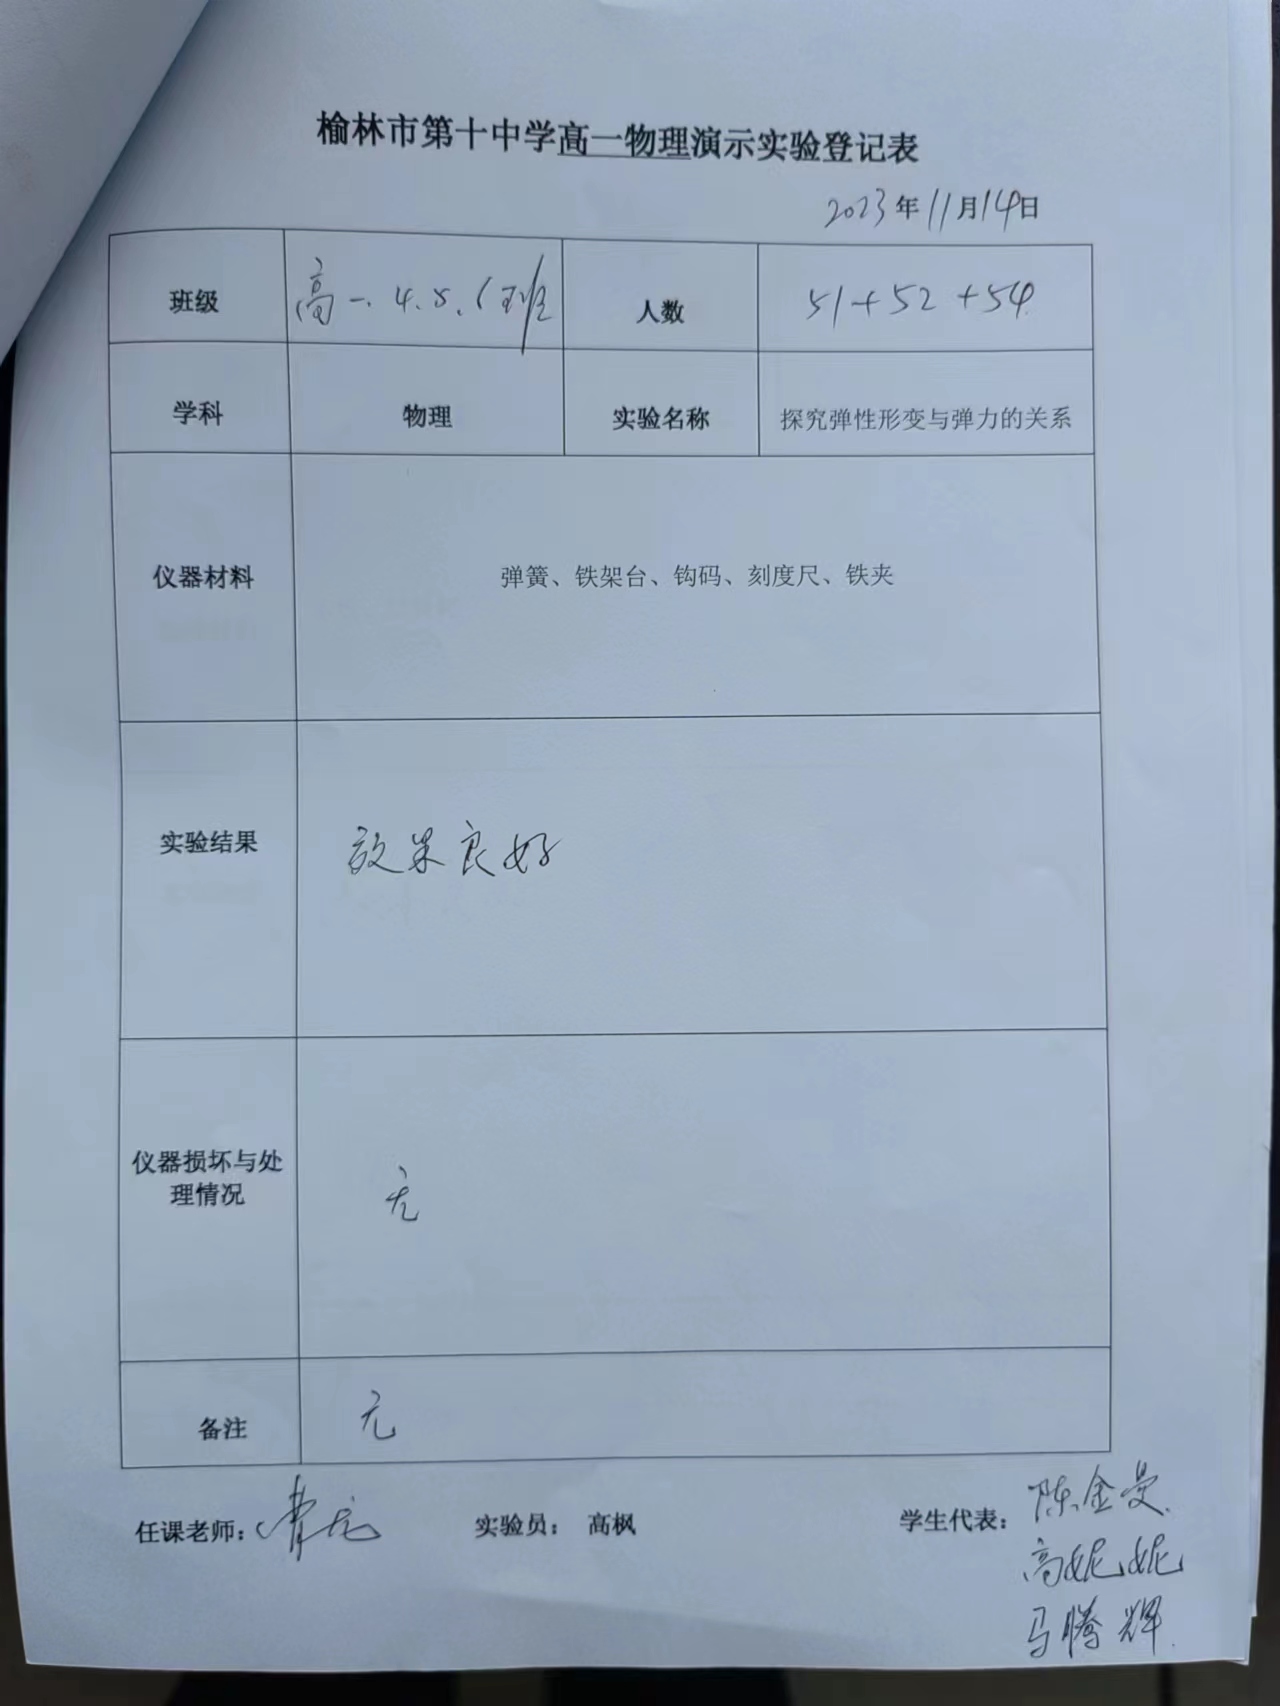 榆林市第十中学高一物理演示实验登记表
2023年11月14日
班级 高一.4.5.6班 人数 51+52+54
学科 物理 实验名称 探究弹性形变与弹力的关系
仪器材料 弹簧、铁架台、钩码、刻度尺、铁夹
实验结果 效果良好
仪器损坏与处
理情况 无
备注 无
任课老师: 实验员: 高枫 学生代表: 陈金曼
高妮妮
马腾辉